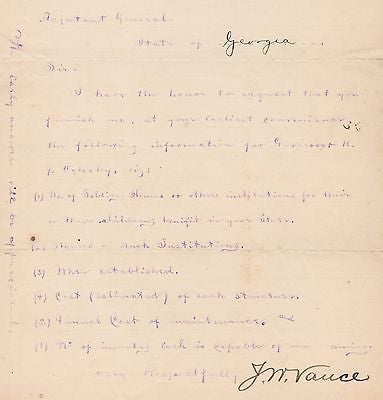 Adjutant General.
State of Georgia
Sir:
I have the honor to request that you
furnish me, at your earliest convenience
the following information for Governor R.
J. Oglesby, viz:
(1) No. of Soldiers Homes or other institutions for their
or their childrens benefit in your State.
(2) Names of such Institutions.
(3) When established.
(4) Cost (estimated) of each structure.
(5) Annual Cost of maintenance, and
(6) No. of inmates each is capable of
Very Respectfully,
J. W. Vance
An early answer will be appreciated.